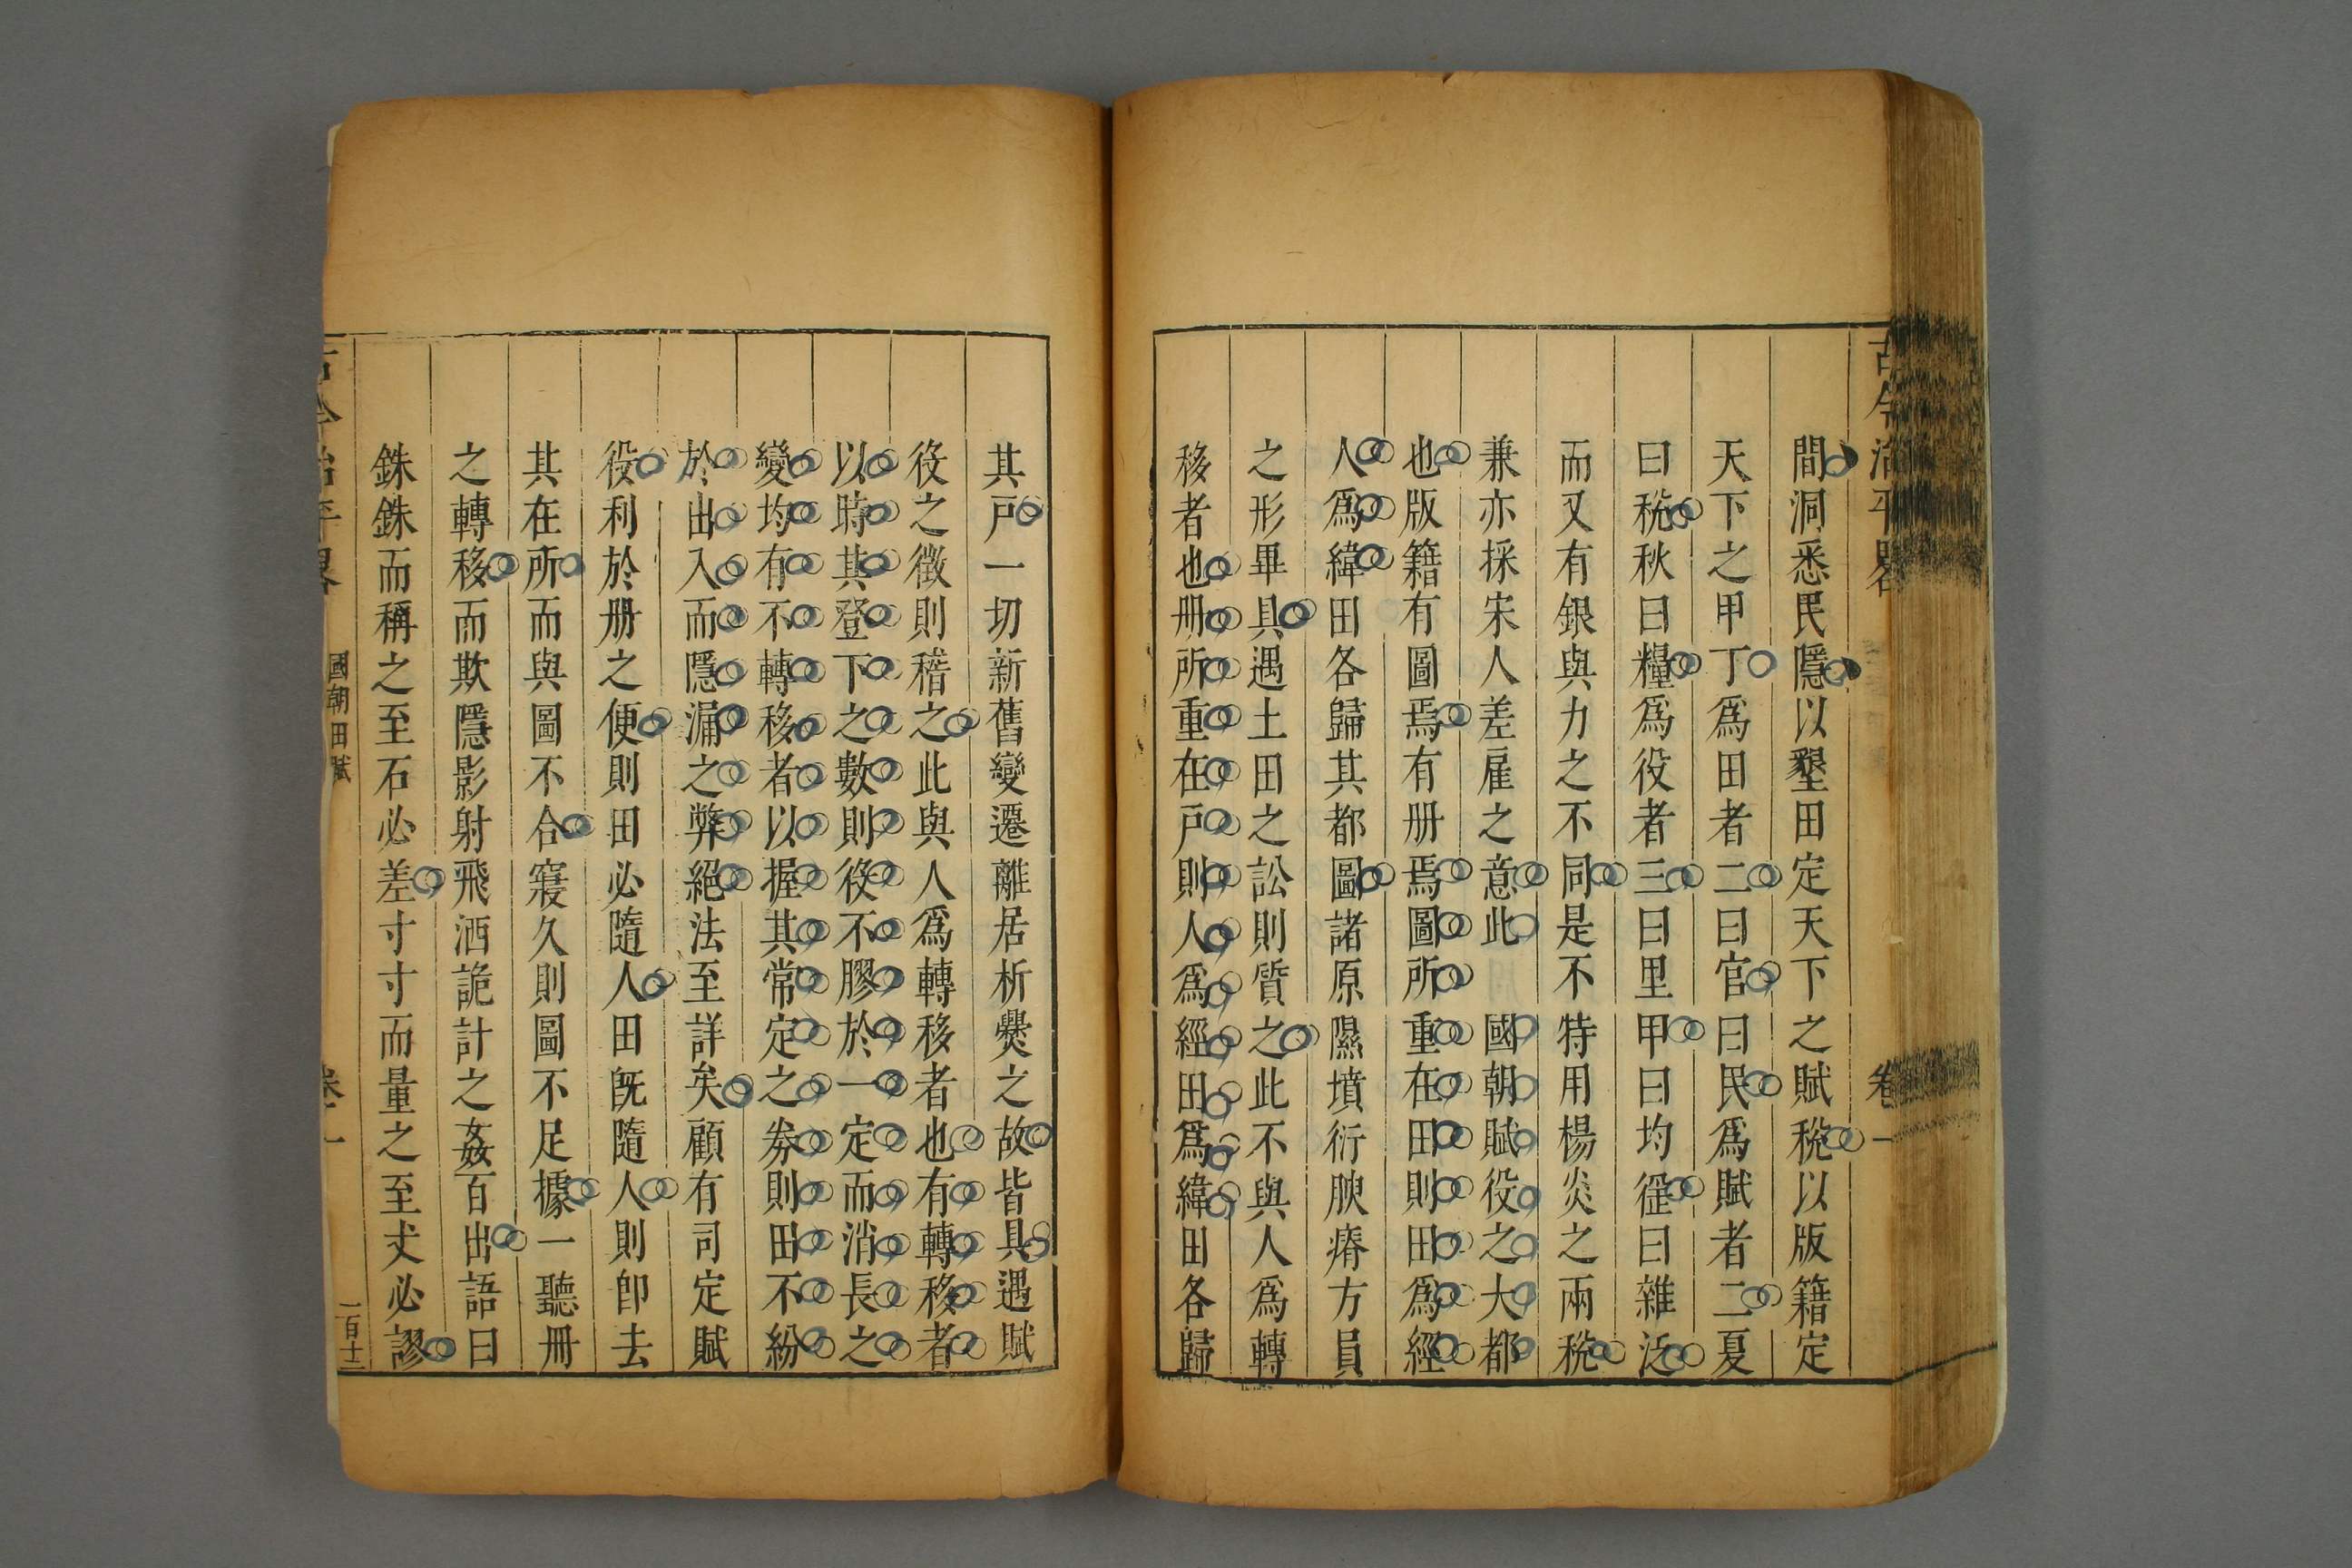 古今治平畧
卷一
間洞悉民隱以墾田定天下之賦稅以版籍定
天下之甲丁爲田者二曰官曰民爲賦者二夏
曰稅秋曰糧爲役者三曰里甲曰均徭曰雜泛
而又有銀與力之不同是不特用楊炎之兩稅
兼亦採宋人差雇之意此國朝賦役之大都
也版籍有圖焉有册焉圖所重在田則田爲經
人爲緯田各歸其都圖諸原隰墳衍腴瘠方員
之形畢具遇土田之訟則質之此不與人爲轉
移者也册所重在戶則人爲經田爲緯田各歸
其戶一切新舊變遷離居析爨之故皆具遇賦
役之徵則稽之此與人爲轉移者也有轉移者
以時其登下之數則役不膠於一定而消長之
變均有不轉移者以握其常定之券則田不紛
於出入而隱漏之弊絕法至詳矣顧有司定賦
役利於册之便則田必隨人田旣隨人則卽去
其在所而與圖不合寖久則圖不足據一聽冊
之轉移而欺隱影射飛洒詭計之姦百出語曰
銖銖而稱之至石必差寸寸而量之至丈必謬
古今治平畧
國朝田賦
卷一
一百十二